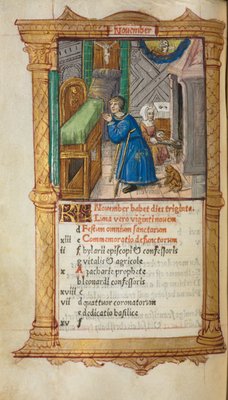 November
November habet dies triginta.
Luna vero viginti novem
d Festum omnium sanctorum
xiii e Commemoratio defunctorum
ii f hylarii episcopi & confessoris
g vitalis & agricole
x A zacharie prophete
b leonardi confessoris
xviii c
vii d quatuor coronatorum
e dedicatio basilice
xv f